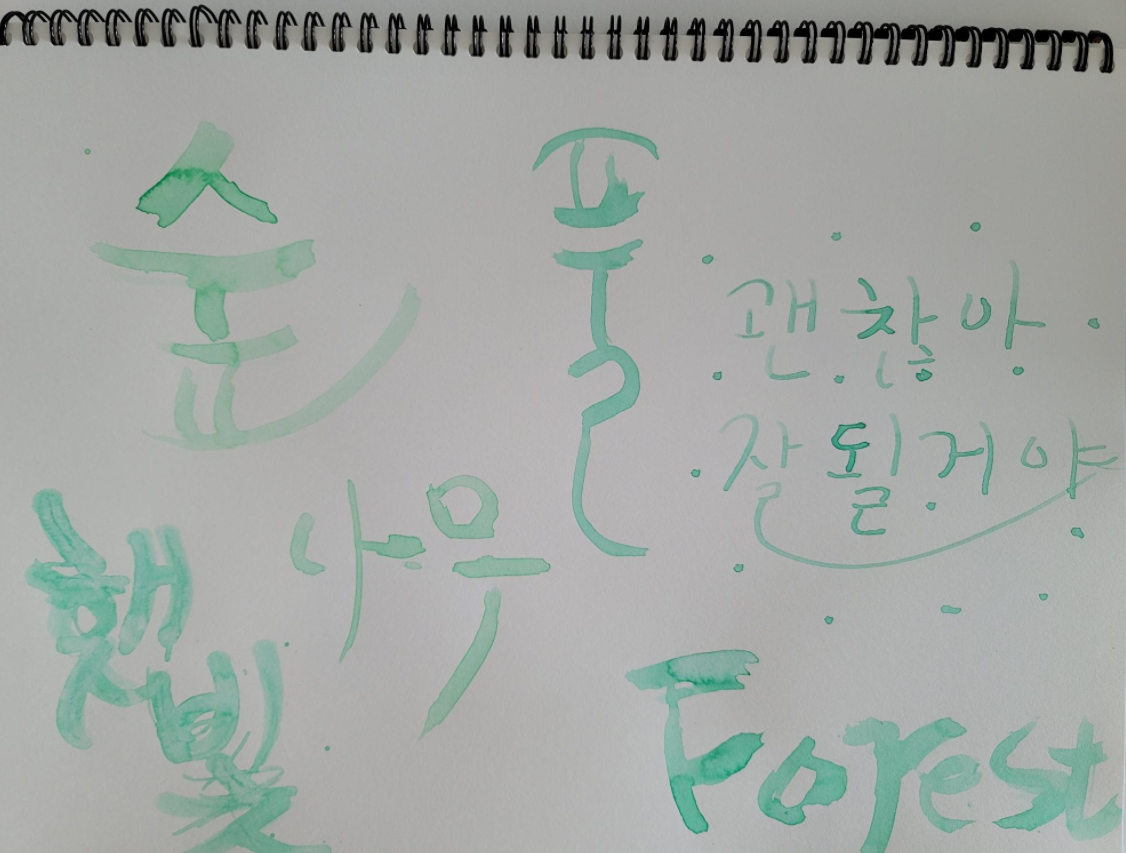 숲
풀
괜찮아
잘될거야
나무
햇
빛
Forest